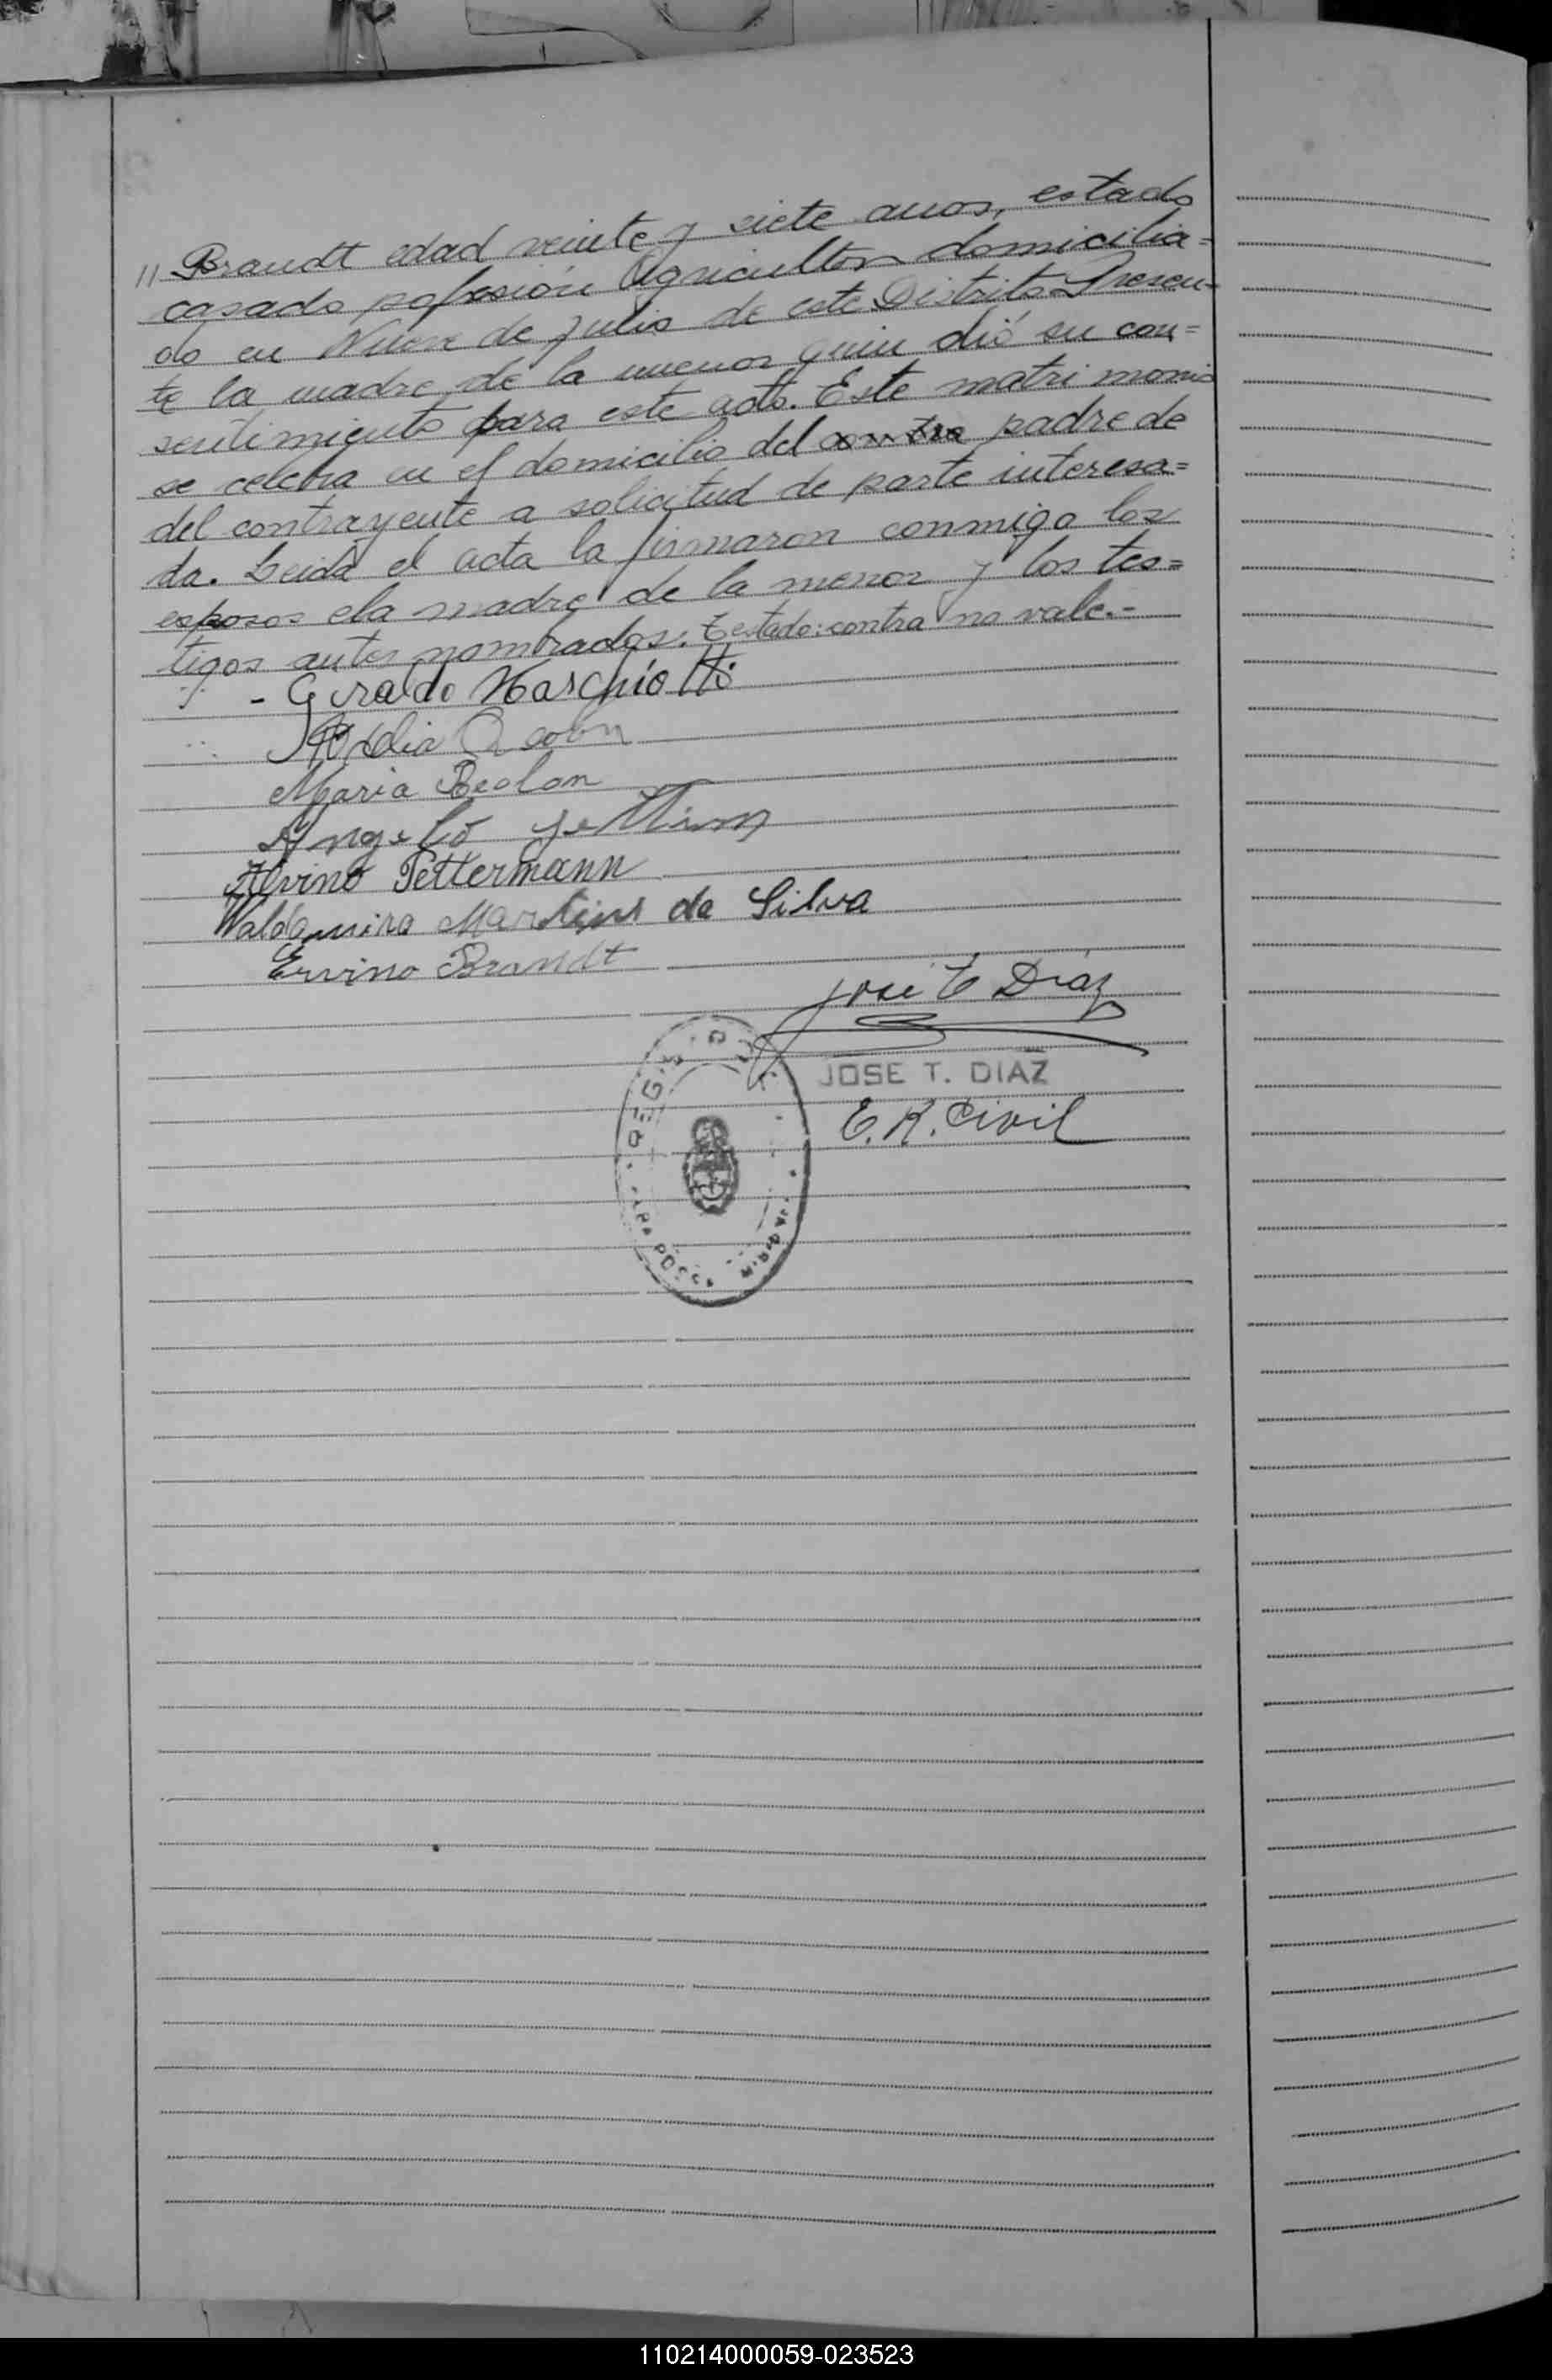 " Brandt edad veinte y siete anos, estado
casado pofesión Agricultor domicilia=
do en Nueve de Julio de este Distrito Presen=
te la madre de la menor quien dió su con=
sentimiento para este acto. Este matrimonio
se celebra en el domicilio del contra padre de
del contrayente a solicitud de parte interesa=
da. Leida el acta la firmaron conmigo los
esposos ela madre de la menor y los tes=
tigos antes nombrados. Testado: contra no vale.-
- Geraldo Marchiotti
Maria Beolon
Angelo
Alvino Pettermann
Waldomiro Martins da Silva
Ervino Brandt
José T Diaz
JOSE T. DIAZ
E. R. Civil
110214000059-023523